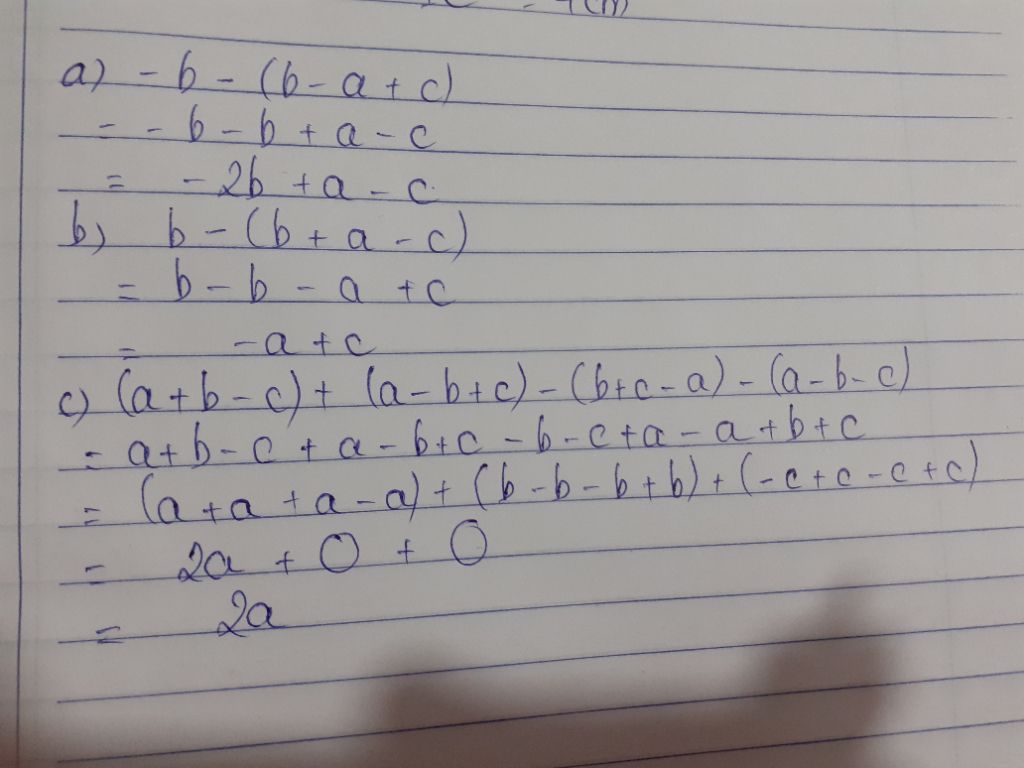 a) - b - (b - a + c)
= - b - b + a - c
= - 2b + a - c
b) b - (b + a - c)
= b - b - a + c
= - a + c
c) (a + b - c) + (a - b + c) - (b + c - a) - (a - b - c)
= a + b - c + a - b + c - b - c + a - a + b + c
= (a + a + a - a) + (b - b - b + b) + (- c + c - c + c)
= 2a + 0 + 0
= 2a